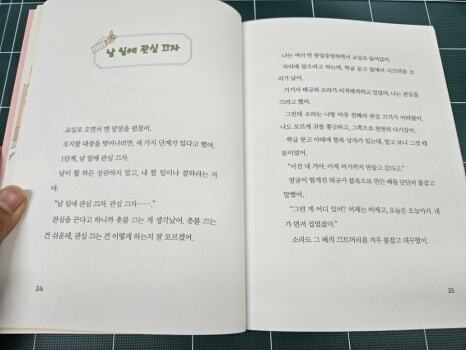 남 일에 관심 끄자
교실로 오면서 맨 앞장을 펼쳤어.
오지랖 대장을 벗어나려면, 세 가지 단계가 있다고 했어.
1단계, 남 일에 관심 끄자.
남이 뭘 하든 상관하지 말고, 내 할 일이나 잘하라는 거
야.
“남 일에 관심 끄자, 관심 끄자…….”
관심을 끈다고 하니까 촛불 끄는 게 생각났어. 촛불 끄는
건 쉬운데, 관심 끄는 건 어떻게 하는지 잘 모르겠어.
24
나는 여러 번 중얼중얼하면서 교실로 들어갔어.
자리에 앉으려고 하는데, 학급 문고 앞에서 시끄러운 소
리가 났어.
거기서 태규와 소라가 티격태격하고 있었어. 나는 관심을
끄려고 했어.
그런데 소라는 나랑 아주 친해서 관심 끄기가 어려웠어.
나도 모르게 귀를 쫑긋하고, 그쪽으로 천천히 다가갔어.
학급 문고 아래에 블록 상자가 있는데, 알고 보니 그것 때
문이었어.
“이건 내 거야. 어제 여기까지 만들고 갔다고.”
얼굴이 벌게진 태규가 블록으로 만든 배를 단단히 붙잡고
말했어.
“그런 게 어디 있어? 어제는 어제고, 오늘은 오늘이지. 내
가 먼저 집었잖아.”
소라도 그 배의 끄트머리를 겨우 붙잡고 대꾸했어.
25